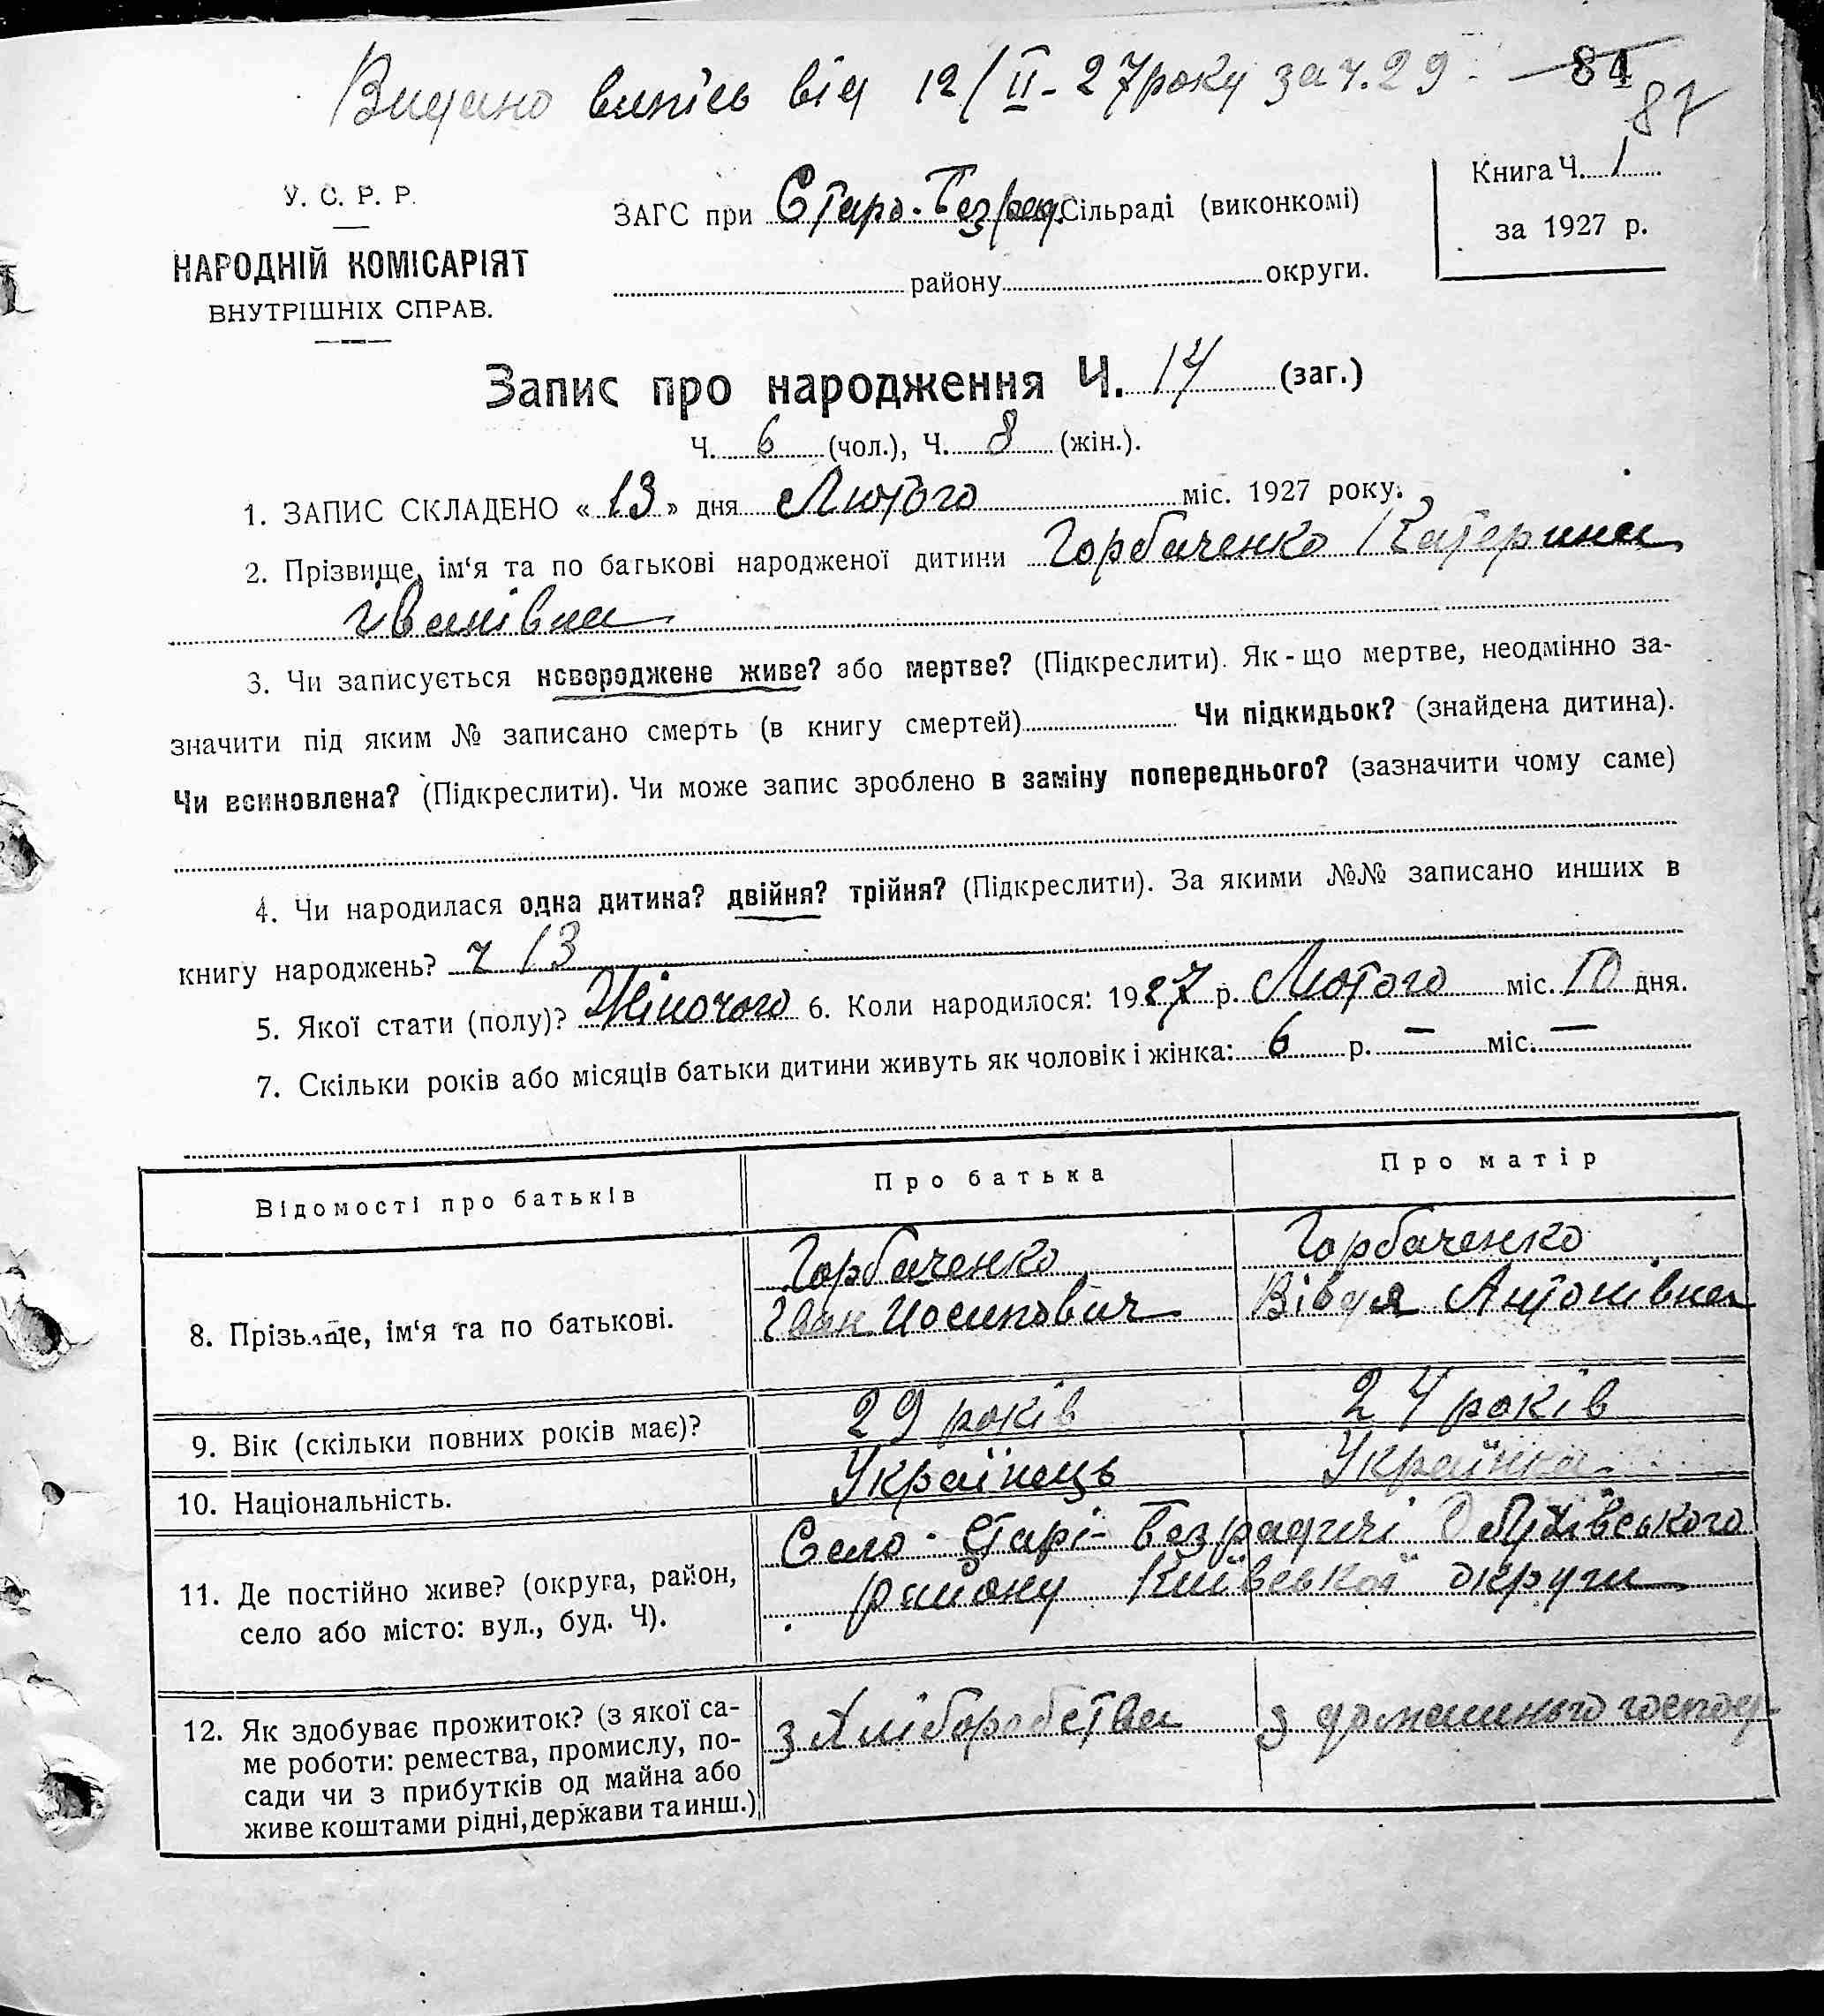 Видано випісь від 12/ІІ-27 року за ч. 29.
84
87
У. С. Р. Р.
НАРОДНІЙ КОМІСАРІЯТ
ВНУТРІШНІХ СПРАВ.
ЗАГС при Старо-Безрад. Сільраді (виконкомі)
району округи.
Книга Ч. 1
за 1927 р.
Запис про народження Ч. 14 (заг.)
Ч. 6 (чол.), Ч. 8 (жін.).
1. ЗАПИС СКЛАДЕНО «13» дня Лютого міс. 1927 року.
2. Прізвище, ім‘я та по батькові народженої дитини Горбаченко Катерина
Іванівна
3. Чи записується новороджене живе? або мертве? (Підкреслити). Як-що мертве, неодмінно за-
значити під яким № записано смерть (в книгу смертей) Чи підкидьок? (знайдена дитина).
Чи всиновлена? (Підкреслити). Чи може запис зроблено в заміну попереднього? (зазначити чому саме)
4. Чи народилася одна дитина? двійня? трійня? (Підкреслити). За якими №№ записано инших в
книгу народжень? ч 13
5. Якої стати (полу)? Жіночого 6. Коли народилося: 1927 р. Лютого міс. 10 дня.
7. Скільки років або місяців батьки дитини живуть як чоловік і жінка: 6 р. — міс. —
Відомості про батьків
Про батька
Про матір
8. Прізвище, ім‘я та по батькові.
Горбаченко
Іван Йосипович
Горбаченко
Вівдя Антонівна
9. Вік (скільки повних років має)?
29 років
24 років
10. Національність.
Українець
Українка
11. Де постійно живе? (округа, район,
село або місто: вул., буд. Ч).
Село-Старі-Безрадичі Обухівського
району Київської округи
12. Як здобуває прожиток? (з якої са-
ме роботи: ремества, промислу, по-
сади чи з прибутків од майна або
живе коштами рідні, держави та инш.)
з Хліборобства
з домашнього господ-